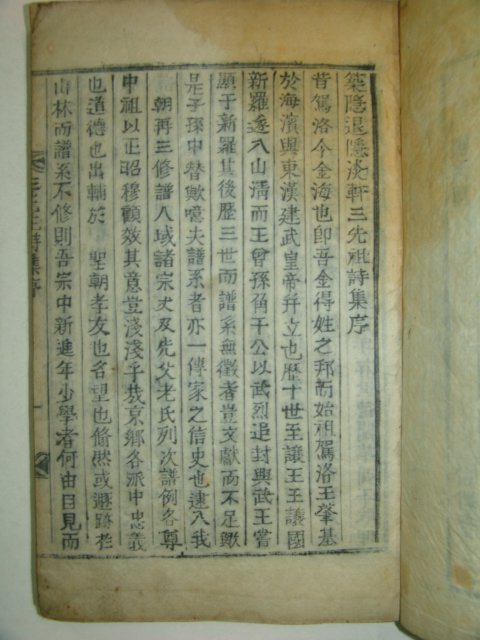 築隱退隱淺軒三先祖詩集序
昔駕洛今金海也卽吾金得姓之邦而始祖駕洛王肇基
於海濱與東漢建武皇帝幷立也歷十世至讓王王議國
新羅遂入山淸而王曾孫角干公以武烈追封興武王當
顯于新羅其後歷三世而譜系無徵者豈文獻而不足歟
是子孫中替歟噫夫譜系者亦一傳家之信史也逮入我
朝再三修譜八域諸宗丈及先父老氏列次譜例各尊
中祖以正昭穆顧效其意豈淺淺乎哉京鄕各派中忠義
也道德也出輔於 聖朝孝友也名望也脩然或遯跡於
山林而譜系不修則吾宗中新進年少學者何由目見而
三先生詩集序